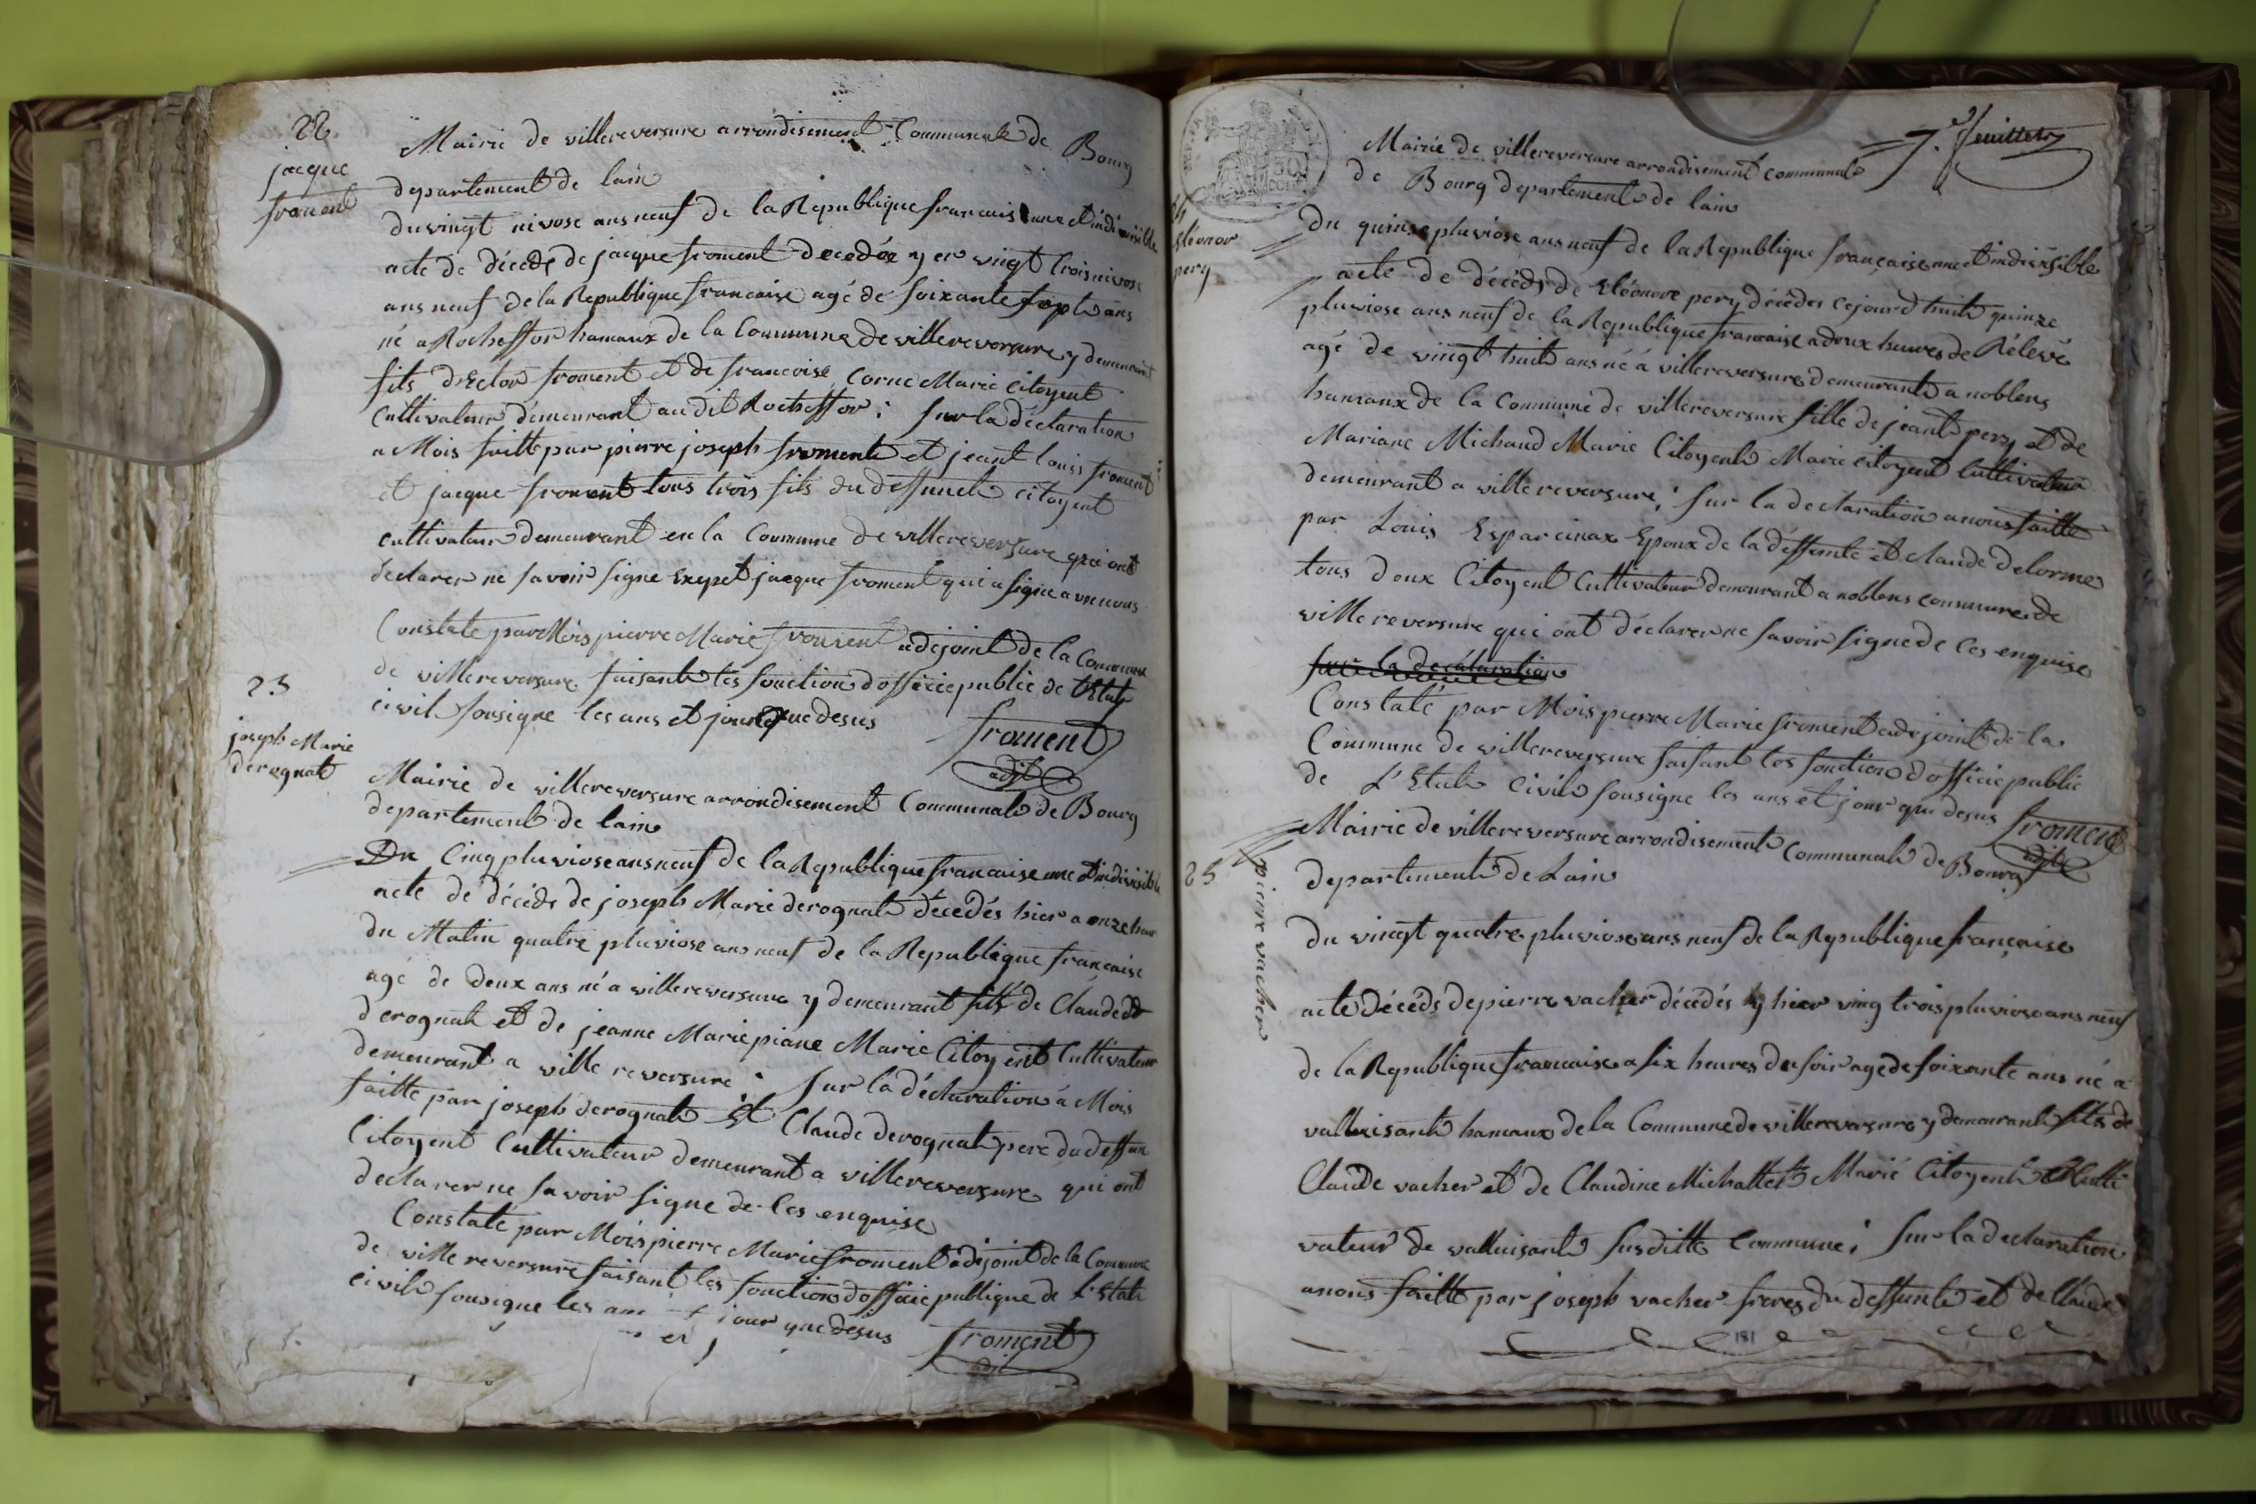 22
jacque
froment
Mairie de villereversure arrondisement Communale de Bourg
departement de lain
du vingt nivose ans neuf de la Republique francaise une et indivisible
acte de décéds de jacque froment decedée y er vingt trois nivose
ans neuf de la Republique francaise agé de soixante sept ans
né a Rocheffor hamaux de la Commune de villereversure y demeurant
fils dector froment et de francoise Corne Marie Citoyent
Cultivateur demeurant audit Rocheffor ; sur la déclaration
a Mois faitte par pierre joseph froment et jeant louis froment
et jacque froment tous trois fils du deffunct citoyent
cultivateur demeurant en la Commune de villereversure qui ont
declarer ne savoir signe exepet jacque froment qui a signe avenous
Constate par Mois pierre Marie froment adejoint de la Commune
de villereversure faisant les fonction dofficie public de lEtat
civil sousigne les ans et jour que desus froment
adjt
23
joseph Marie
derognat
Mairie de villereversure arrondisement Communale de Bourg
departement de lain
Du Cinq pluviose ans neuf de la Republique francaise une et indivisible
acte de décéds de joseph Marie derognat decedés hier a onze heur
du Matin quatre pluviose ans neuf de la Republique francaise
agé de deux ans né a villereversure y demeurant fils de Claude
derognat et de jeanne Marie piane Marie Citoyent Cultivateur
demeurant a ville reversure ; sur la déclaration á Mois
faitte par joseph derognat Et Claude derognat pere du deffun
Citoyent Cultivateur demeurant a villereversure qui ont
declarer ne savoir signe de les enquise
Constaté par Mois pierre Marie froment adjoint de la Commune
de ville reversure faisant les fonction dofficie publique de L'Etat
civil sousigne les ans et jour que desus froment
adjt
7.e feuillet
Eléonor
pery
Mairie de villereversure arrondisement communale
de Bourg departement de lain
du quinse pluviose ans neuf de la Republique française une et indivisible
acte de décéds de Eléonore pery décédes cejourdhuit quinze
pluviose ans neuf de la Republique francaise a deux heures de Rélevé
agé de vingt huit ans né á villereversure demeurant a noblens
hamaux de la Commune de villereversure fille de jeant pery et de
Mariane Michaud Marie Citoyent Marie citoyent Cultivateur
demeurant a villereversure ; sur la declaration a nous faitte
par Louis Esparcinax Epoux de la deffunte et claude delorme
tous deux Citoyent Cultivateur demeurant a noblens commune de
villereversure qui ont déclarer ne savoir signe de les enquise
sur la declaration
Constaté par Mois pierre Marie froment adejoint de la
Commune de villereversure faisant les fonction d'officie public
de L'Etat Civil sousigne les ans et jour que desus froment
adjt
25
pierre vacher
Mairie de villereversure arrondisement Communale de Bourg
departement de Lain
du vingt quatre pluviose ans neuf de la Republique française
acte décéds de pierre vacher décédés y hier ving trois pluviose ans neuf
de la Republique francaise a six heures du soir age de soixante ans né a
valluisant hameaux de la Commune de villereversure y demeurant fils de
Claude vacher et de Claudine Michallet Marié Citoyent Culti
vateur de valluisant susditte Commune ; sur la declaration
anous faitte par joseph vacher freres du deffunt et de Claude
181